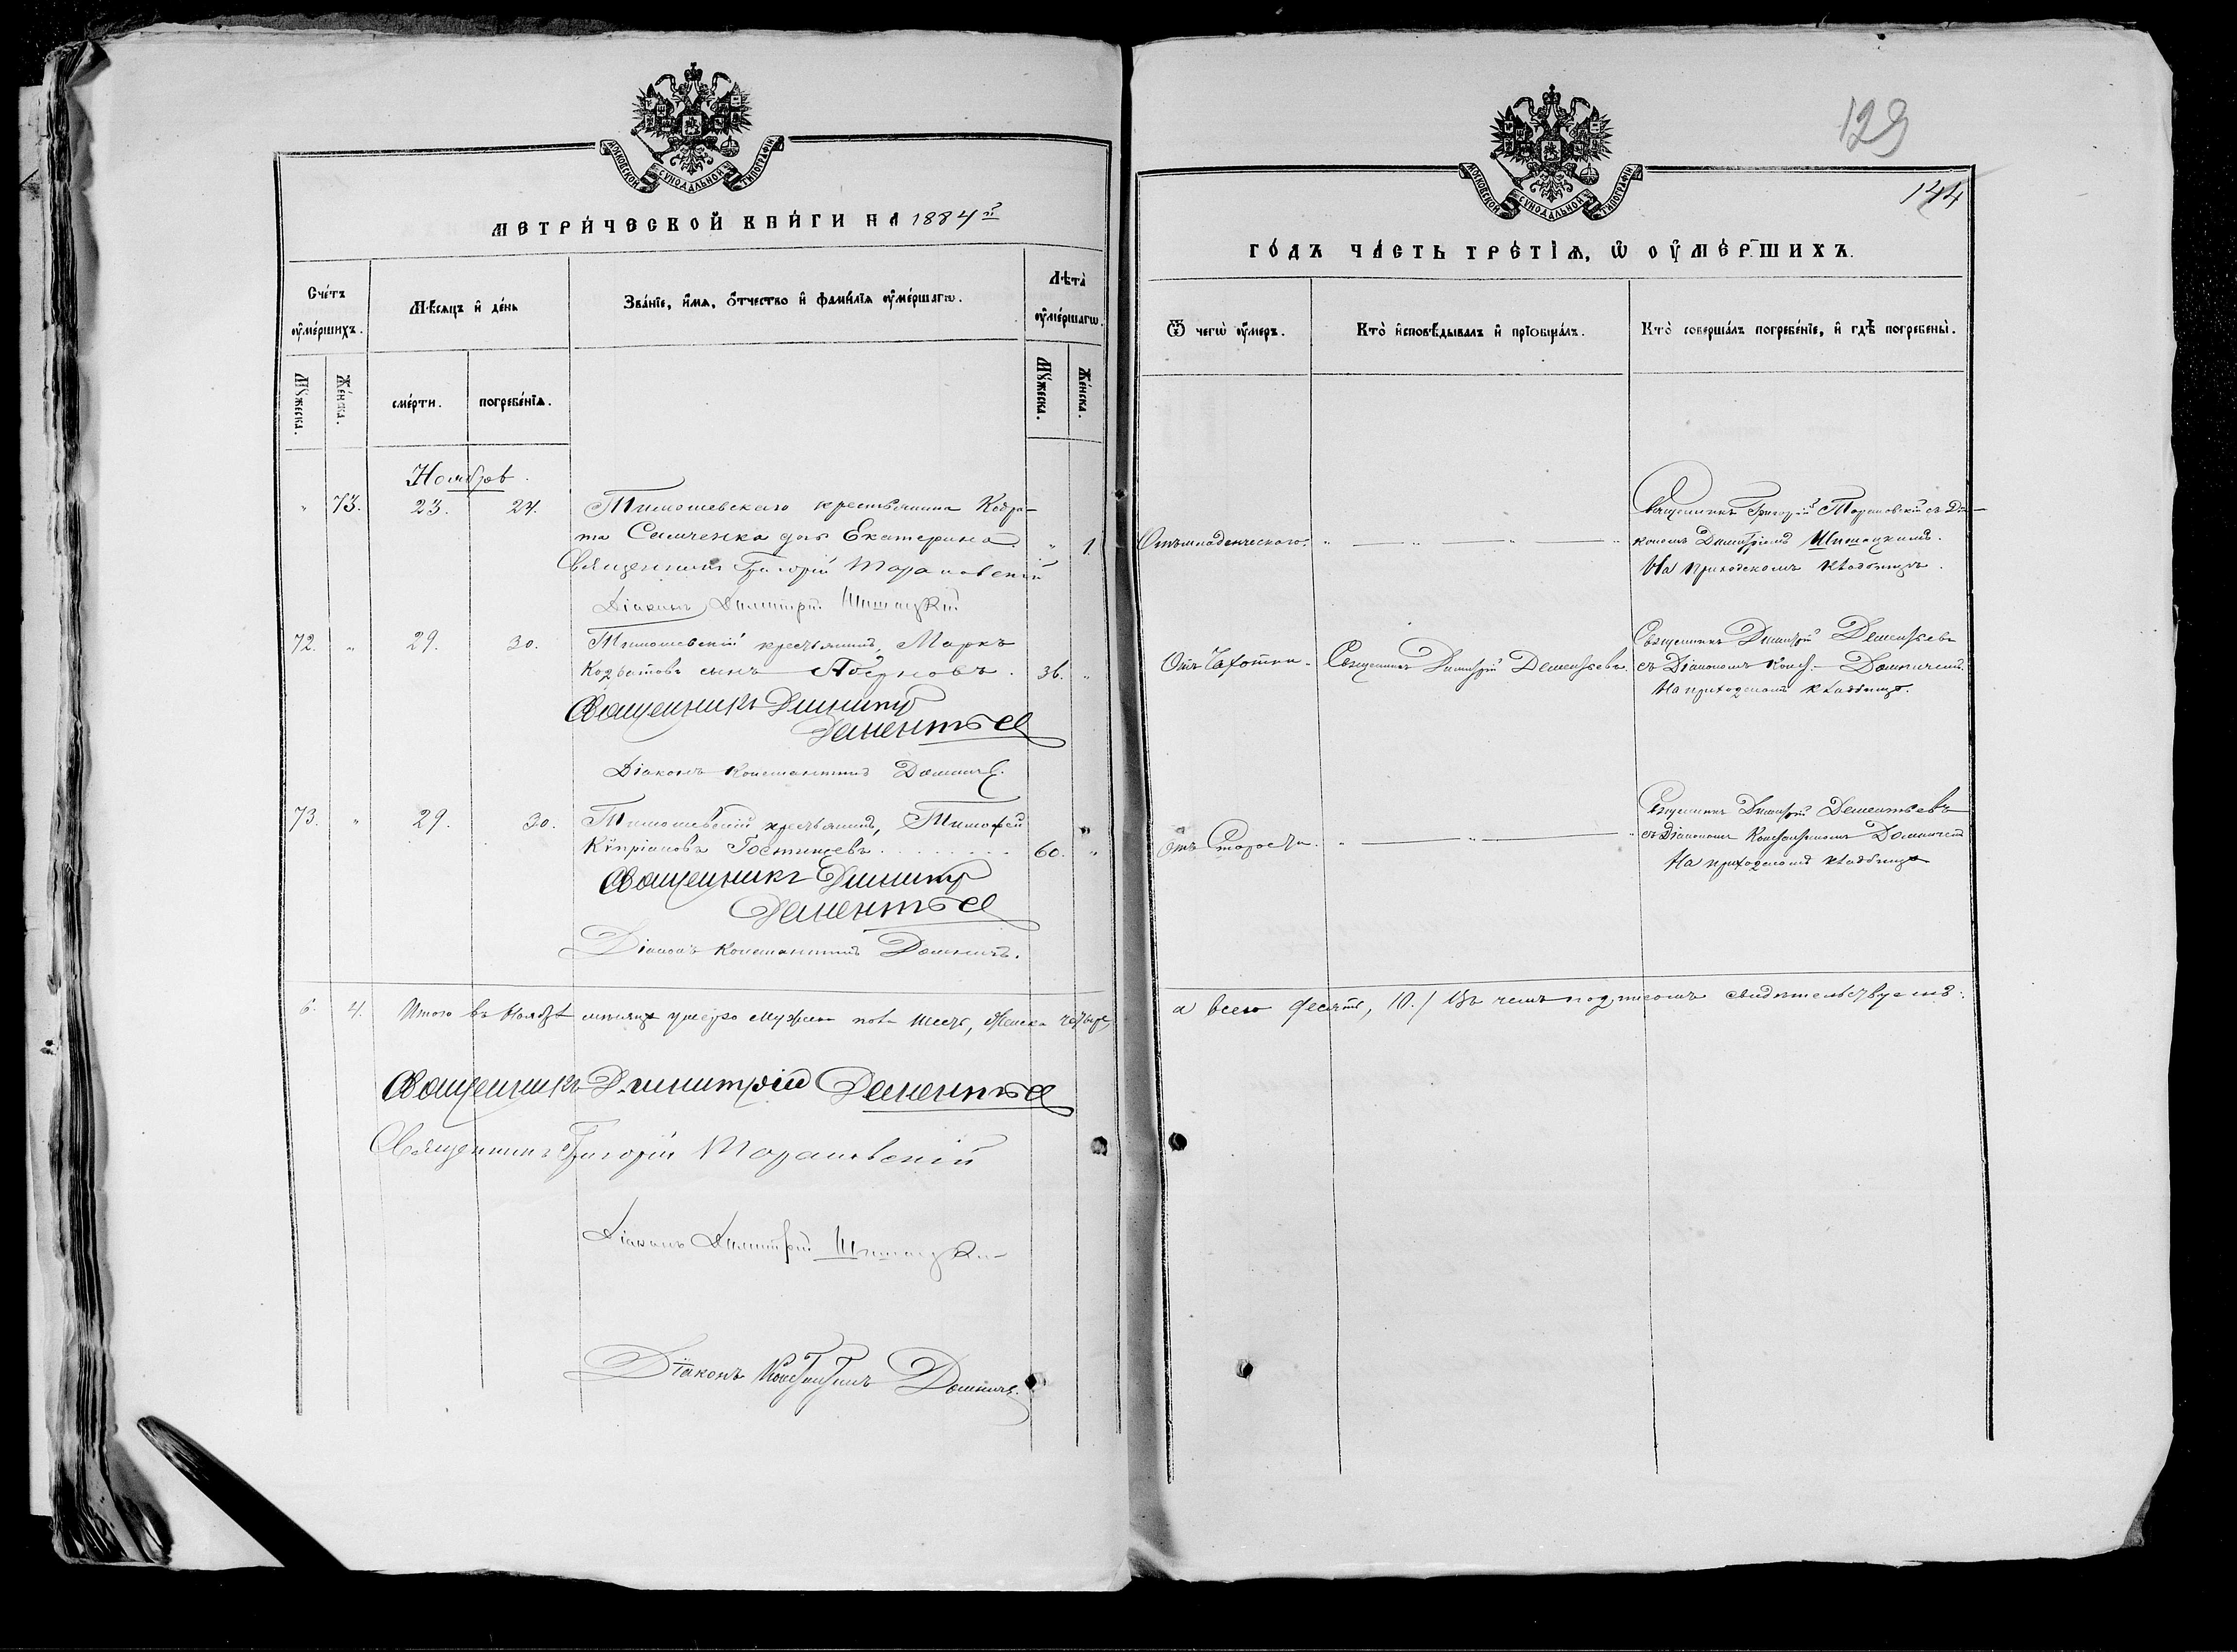 МОСКОВСКОЙ СѴНОДАЛЬНОЙ ТИПОГРАФІИ
МЕТРИ́ЧЕСКОЙ КНИ́ГИ НА 1884й
Сче́тъ ᲂу҆ме́ршихъ.
Мѣ́сяцъ и҆ де́нь
Зва́нїе, и҆́мѧ, ѻ҆́тчество и҆ фами́лїѧ ᲂу҆ме́ршагѡ.
Лѣ́та ᲂу҆ме́ршагѡ.
Мꙋ́жеска.
Же́нска.
сме́рти.
погребе́нїѧ.
Мꙋ́жеска.
Же́нска.
Ноябрь.
" 73. 23. 24. Тимошевскаго крестьянина Кодра-
та Самченка дочь Екатерина. " 1.
Священникъ Григорій Тарановскій
Діаконъ Димитрій Шишацкій
72. " 29. 30. Тимошевскій крестьянинъ, Маркъ
Кодратовъ сынъ 36. "
Священникъ Димитр
Дементьев
Діаконъ Константинъ Домнич
73. " 29. 30. Тимошевскій крестьянинъ, Тимофей
Кѵпріановъ Гостищевъ 60. "
Священникъ Димитр
Дементьев
Діаконъ Константинъ Домничъ.
6. 4. Итого въ Ноябрѣ мѣсяцѣ умерло мужеска пола шесть, женска четыре
Священникъ Димитрій Дементьев
Священникъ Григорій Тарановскій
Діаконъ Димитрій Шишацкі
Діаконъ Константинъ Домничъ.
129
144
МОСКОВСКОЙ СѴНОДАЛЬНОЙ ТИПОГРАФІИ
ГО́ДЪ ЧА́СТЬ ТРЕ́ТІѦ, Ѡ҆ ОУ҆МЕ́РШИХЪ.
Ѿ чегѡ̀ ᲂу҆́меръ.
Кто̀ и҆сповѣ́дывалъ и҆ прїѡбща́лъ.
Кто̀ соверша́лъ погребе́нїе, и҆ гдѣ̀ погребены̀.
Отъ младенческаго. " " "
Священникъ Григорій Тарановскій съ Діа-
кономъ Димитріемъ Шишацкимъ.
На приходскомъ кладбищѣ.
Отъ Чахотки.
Священникъ Димитрій Дементьевъ.
Священникъ Димитрій Дементьевъ
съ Діакономъ Конст. Домничемъ.
На приходскомъ кладбищѣ.
Отъ Старости. " " "
Священникъ Димитрій Дементьевъ
съ Діакономъ Константиномъ Домничемъ
На приходскомъ кладбищѣ
а всего десять, 10. / Въ чемъ подписомъ свидѣтельствуемъ: